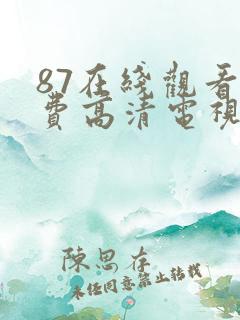 87在綫觀看
費高清電視
陳思存
未经同意禁止转载